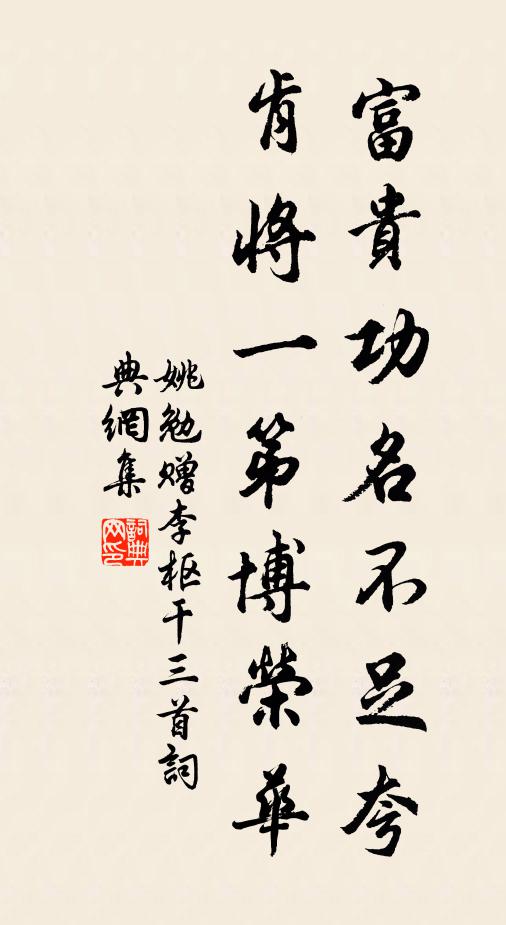 富貴功名不足夸
肯將一第博榮華
姚勉赠李枢干三首詞
典網集
詞典網印